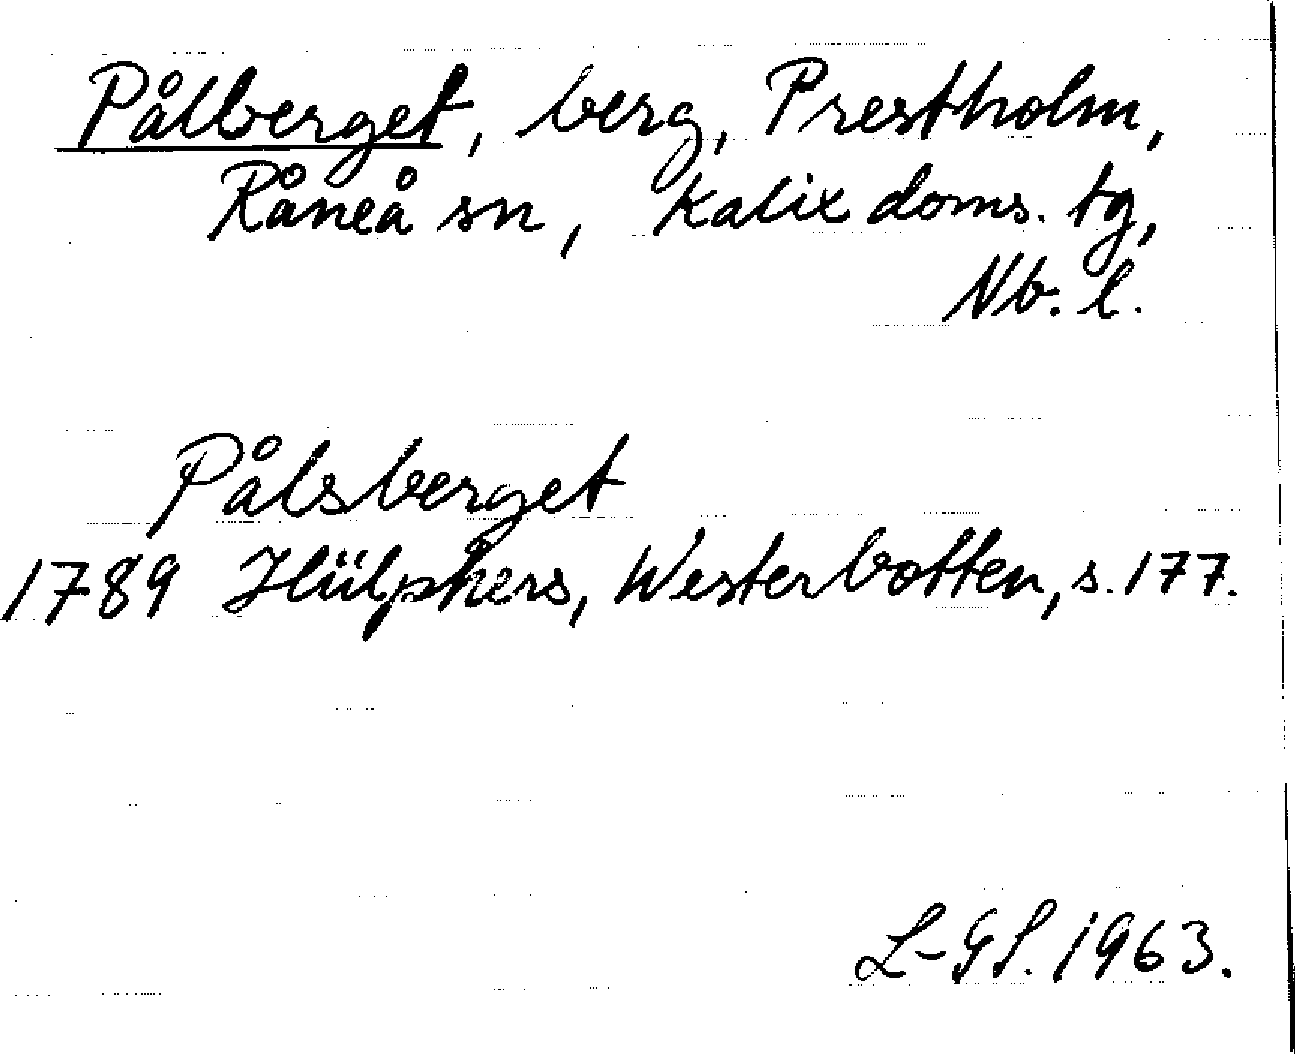 Pålberget, berg, Prestholm,
Råneå sn, Kalix doms. tg,
Nb. l.
Pålsberget
1789 Hülphers, Westerbotten, s. 177.
L-GS. 1963.